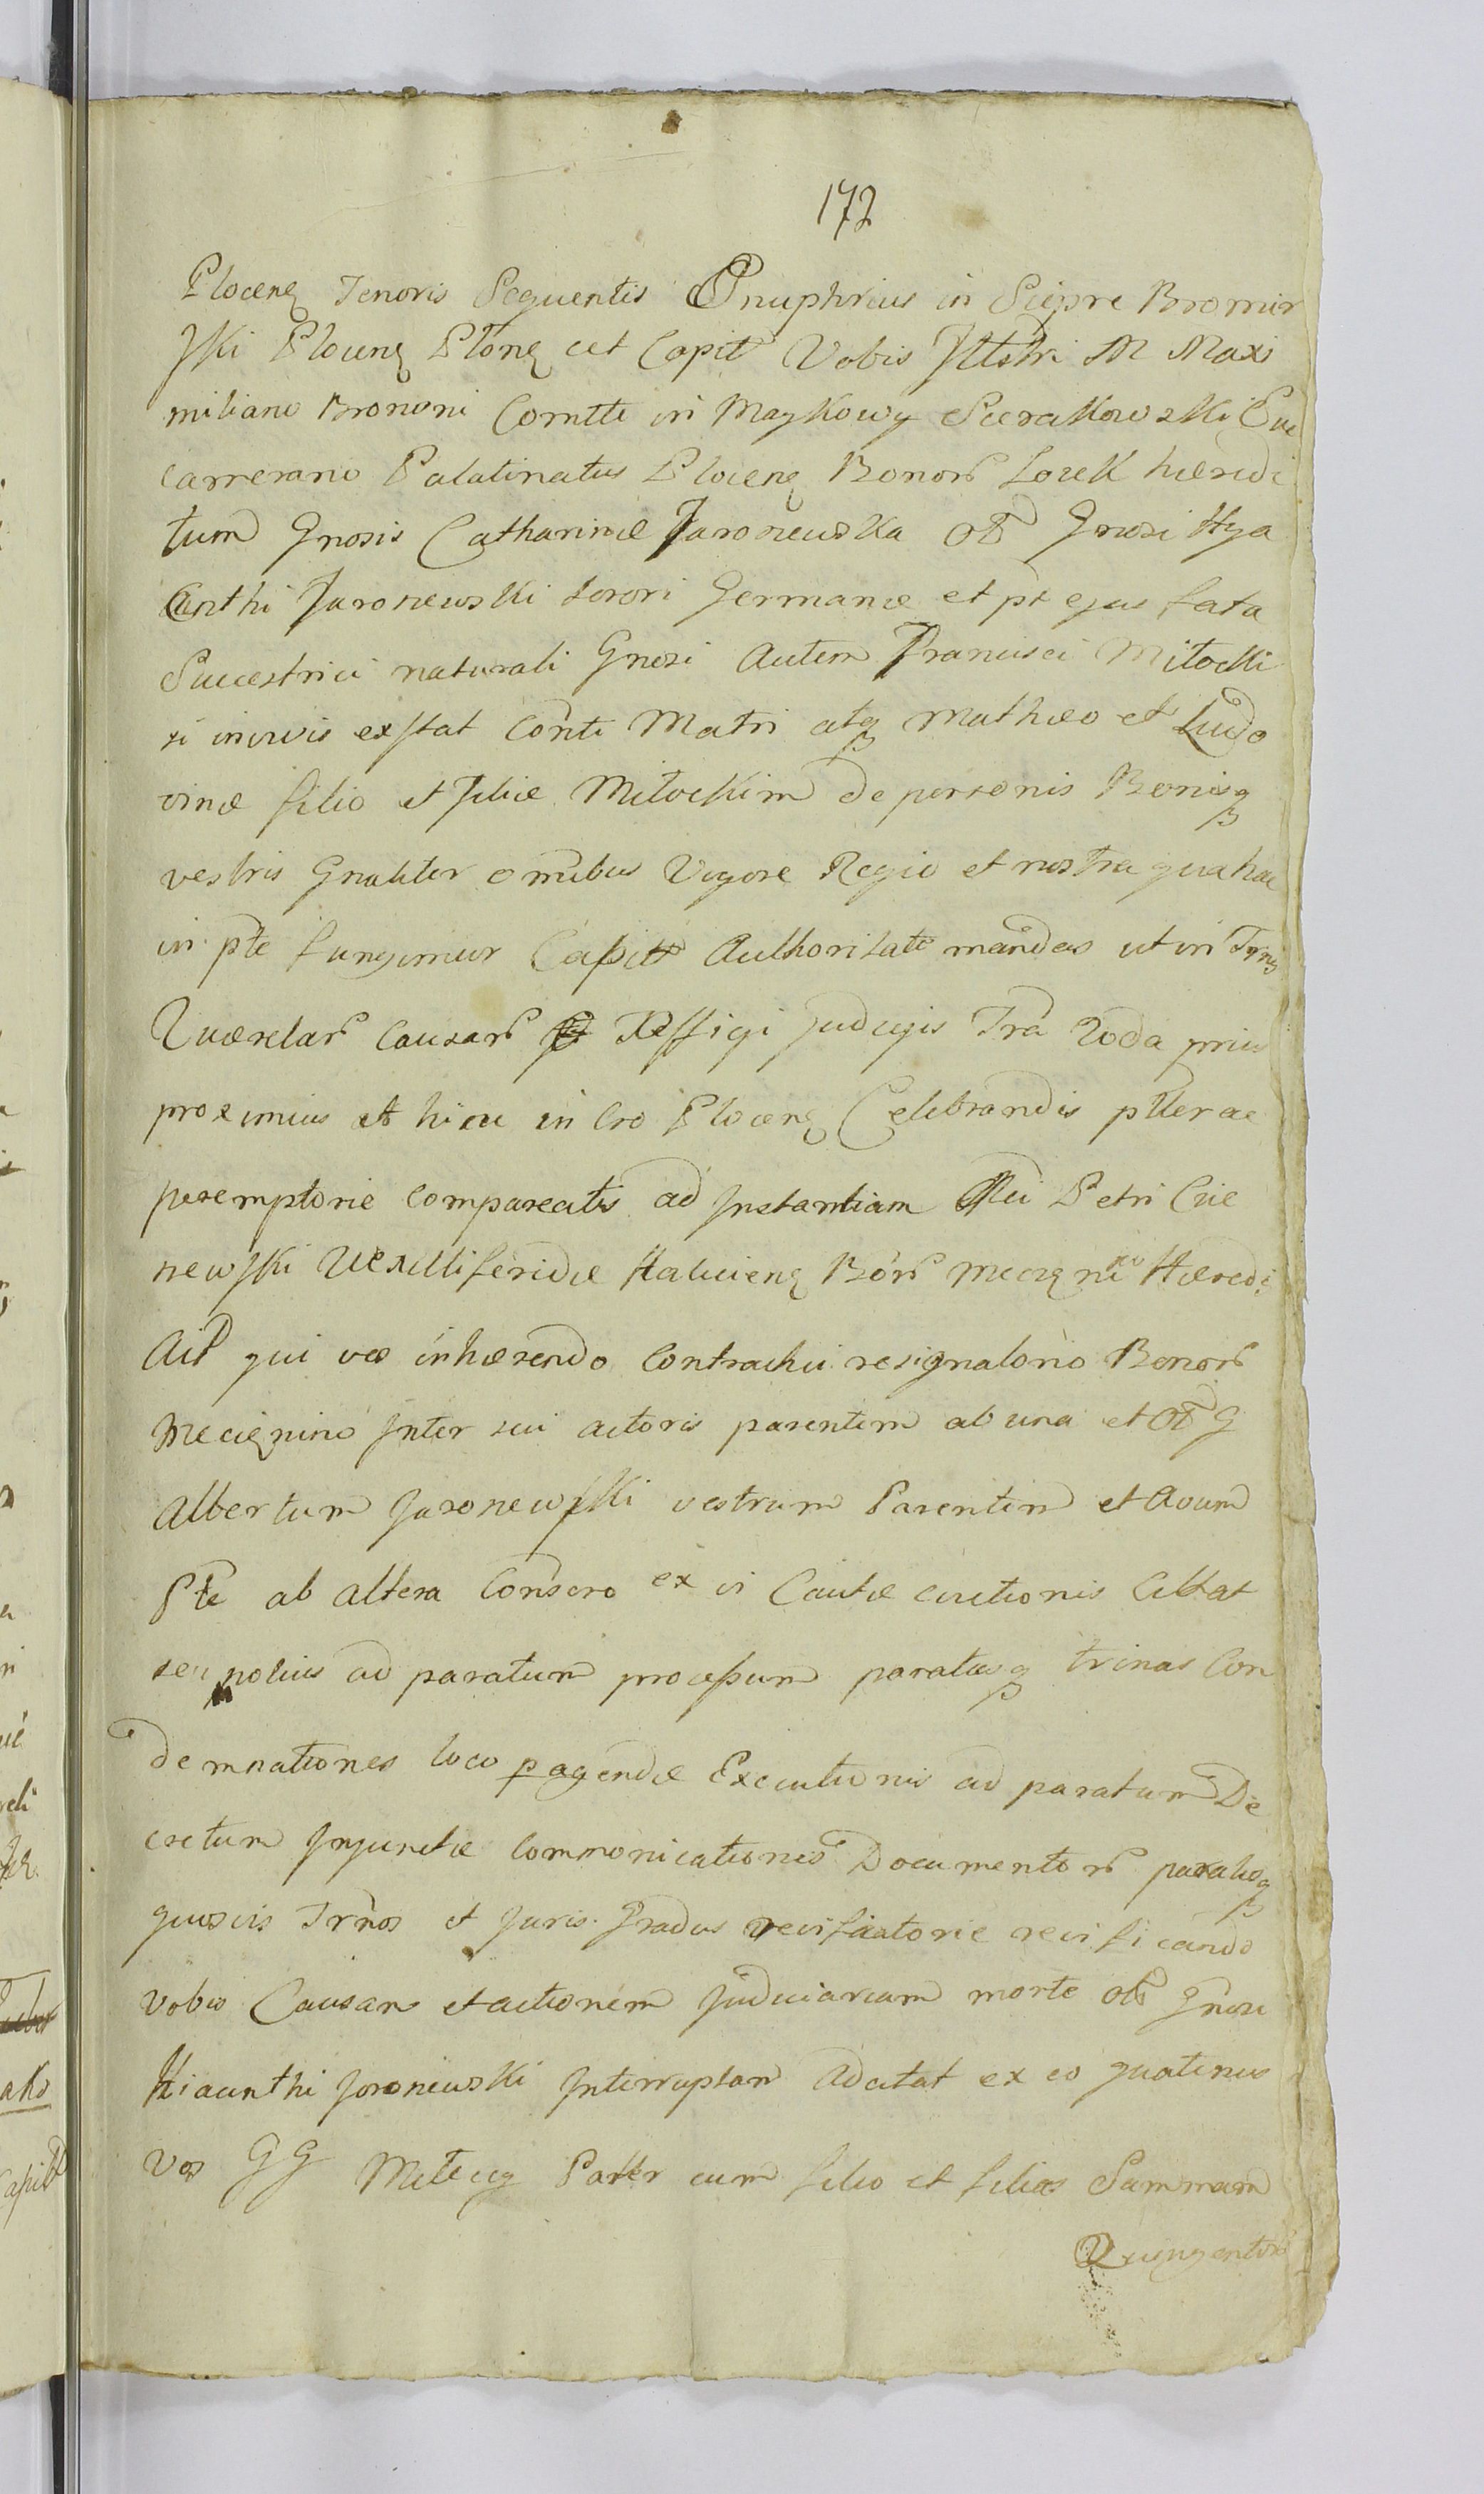 172
Plocen Tenoris Sequentis Onuphrius in Siepre Bromir
ski Plocen Plonen et Capit Vobis Illstri M Maxi
miliano Brononi Comiti in Maykowy Sierakowski
camerario Palatinatus Plocen Bonor Lorek hæredi
tum Gnosis Catharinæ Jaronewska Gnosi Hya
Cinthi Jaronewski sorori Germanæ et pt ejus fata
Sucestrici naturali Gnosi Autem Francisci Mitocki
si invivis exstat Conti Matri atq Mathæo et Ludo
vinæ filio et filiæ Mitockim de personis Bonisq
vestris Gnaliter omibus Vigore Regio et nostra qua hac
in pte fungimur Capit Authoritate mandas ut in Trnis
Quærelar Causar Reffigi Judicijs Tra prius
proximius et hicce in Cro Plocen Celebrandis plter ac
peremptorie compareatis ad Instantiam Petri Cie
newski Vexilliferidæ Haliciens Bor Hæredi
qui vos inhærendo Contractui resignatorio Bonor
Mecignino Inter sui actoris parentem ab una et G
Albertum Jaronewski vestrum Parentem et Avum
Pte ab altera Consero ex vi Cautæ evictionis Cittat
seu potius ad paratum processum paratasq trinas Con
demnationes loco pagendæ Executionis ad paratum De
cretum Injunctæ Commonicationis Documentor paratosq
quosvis Trnos et Juris Gradus reificatorie reificando
vobis Causam et actionem Judiciariam morte Gnosi
Hiacinthi Joroniewski Interruptam Adcitat ex eo quatinus
Vos GG Mitoccy Pater cum filio et filias Summam
Quingentor